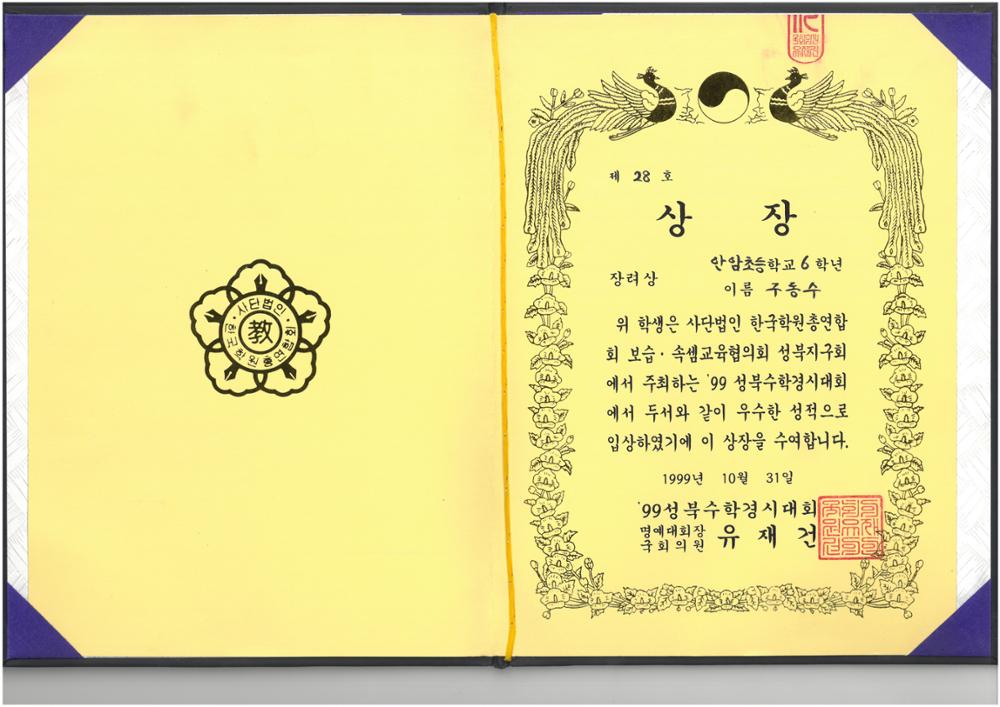 사단법인
한국학원총연합회
教
제 28 호
상 장
안암초등학교 6 학년
장려상
이름 주동수
위 학생은 사단법인 한국학원총연합
회 보습·속셈교육협의회 성북지구회
에서 주최하는 '99 성북수학경시대회
에서 두서와 같이 우수한 성적으로
입상하였기에 이 상장을 수여합니다.
1999년 10월 31일
'99성북수학경시대회
명예대회장
국회의원 유재건